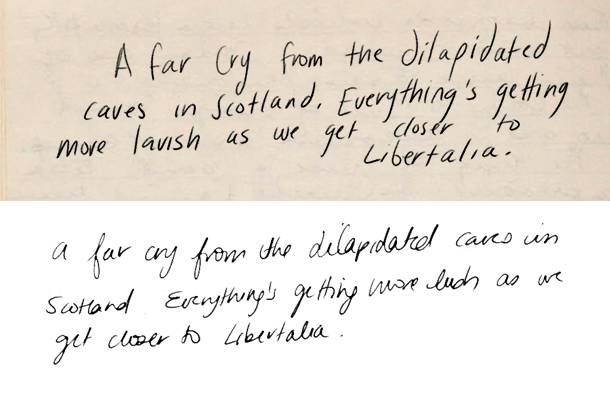 A far Cry from the dilapidated
caves in Scotland. Everything's getting
more lavish as we get closer to
Libertalia.
a far cry from the dilapidated caves in
Scotland. Everything's getting more lush as we
get closer to Libertalia.